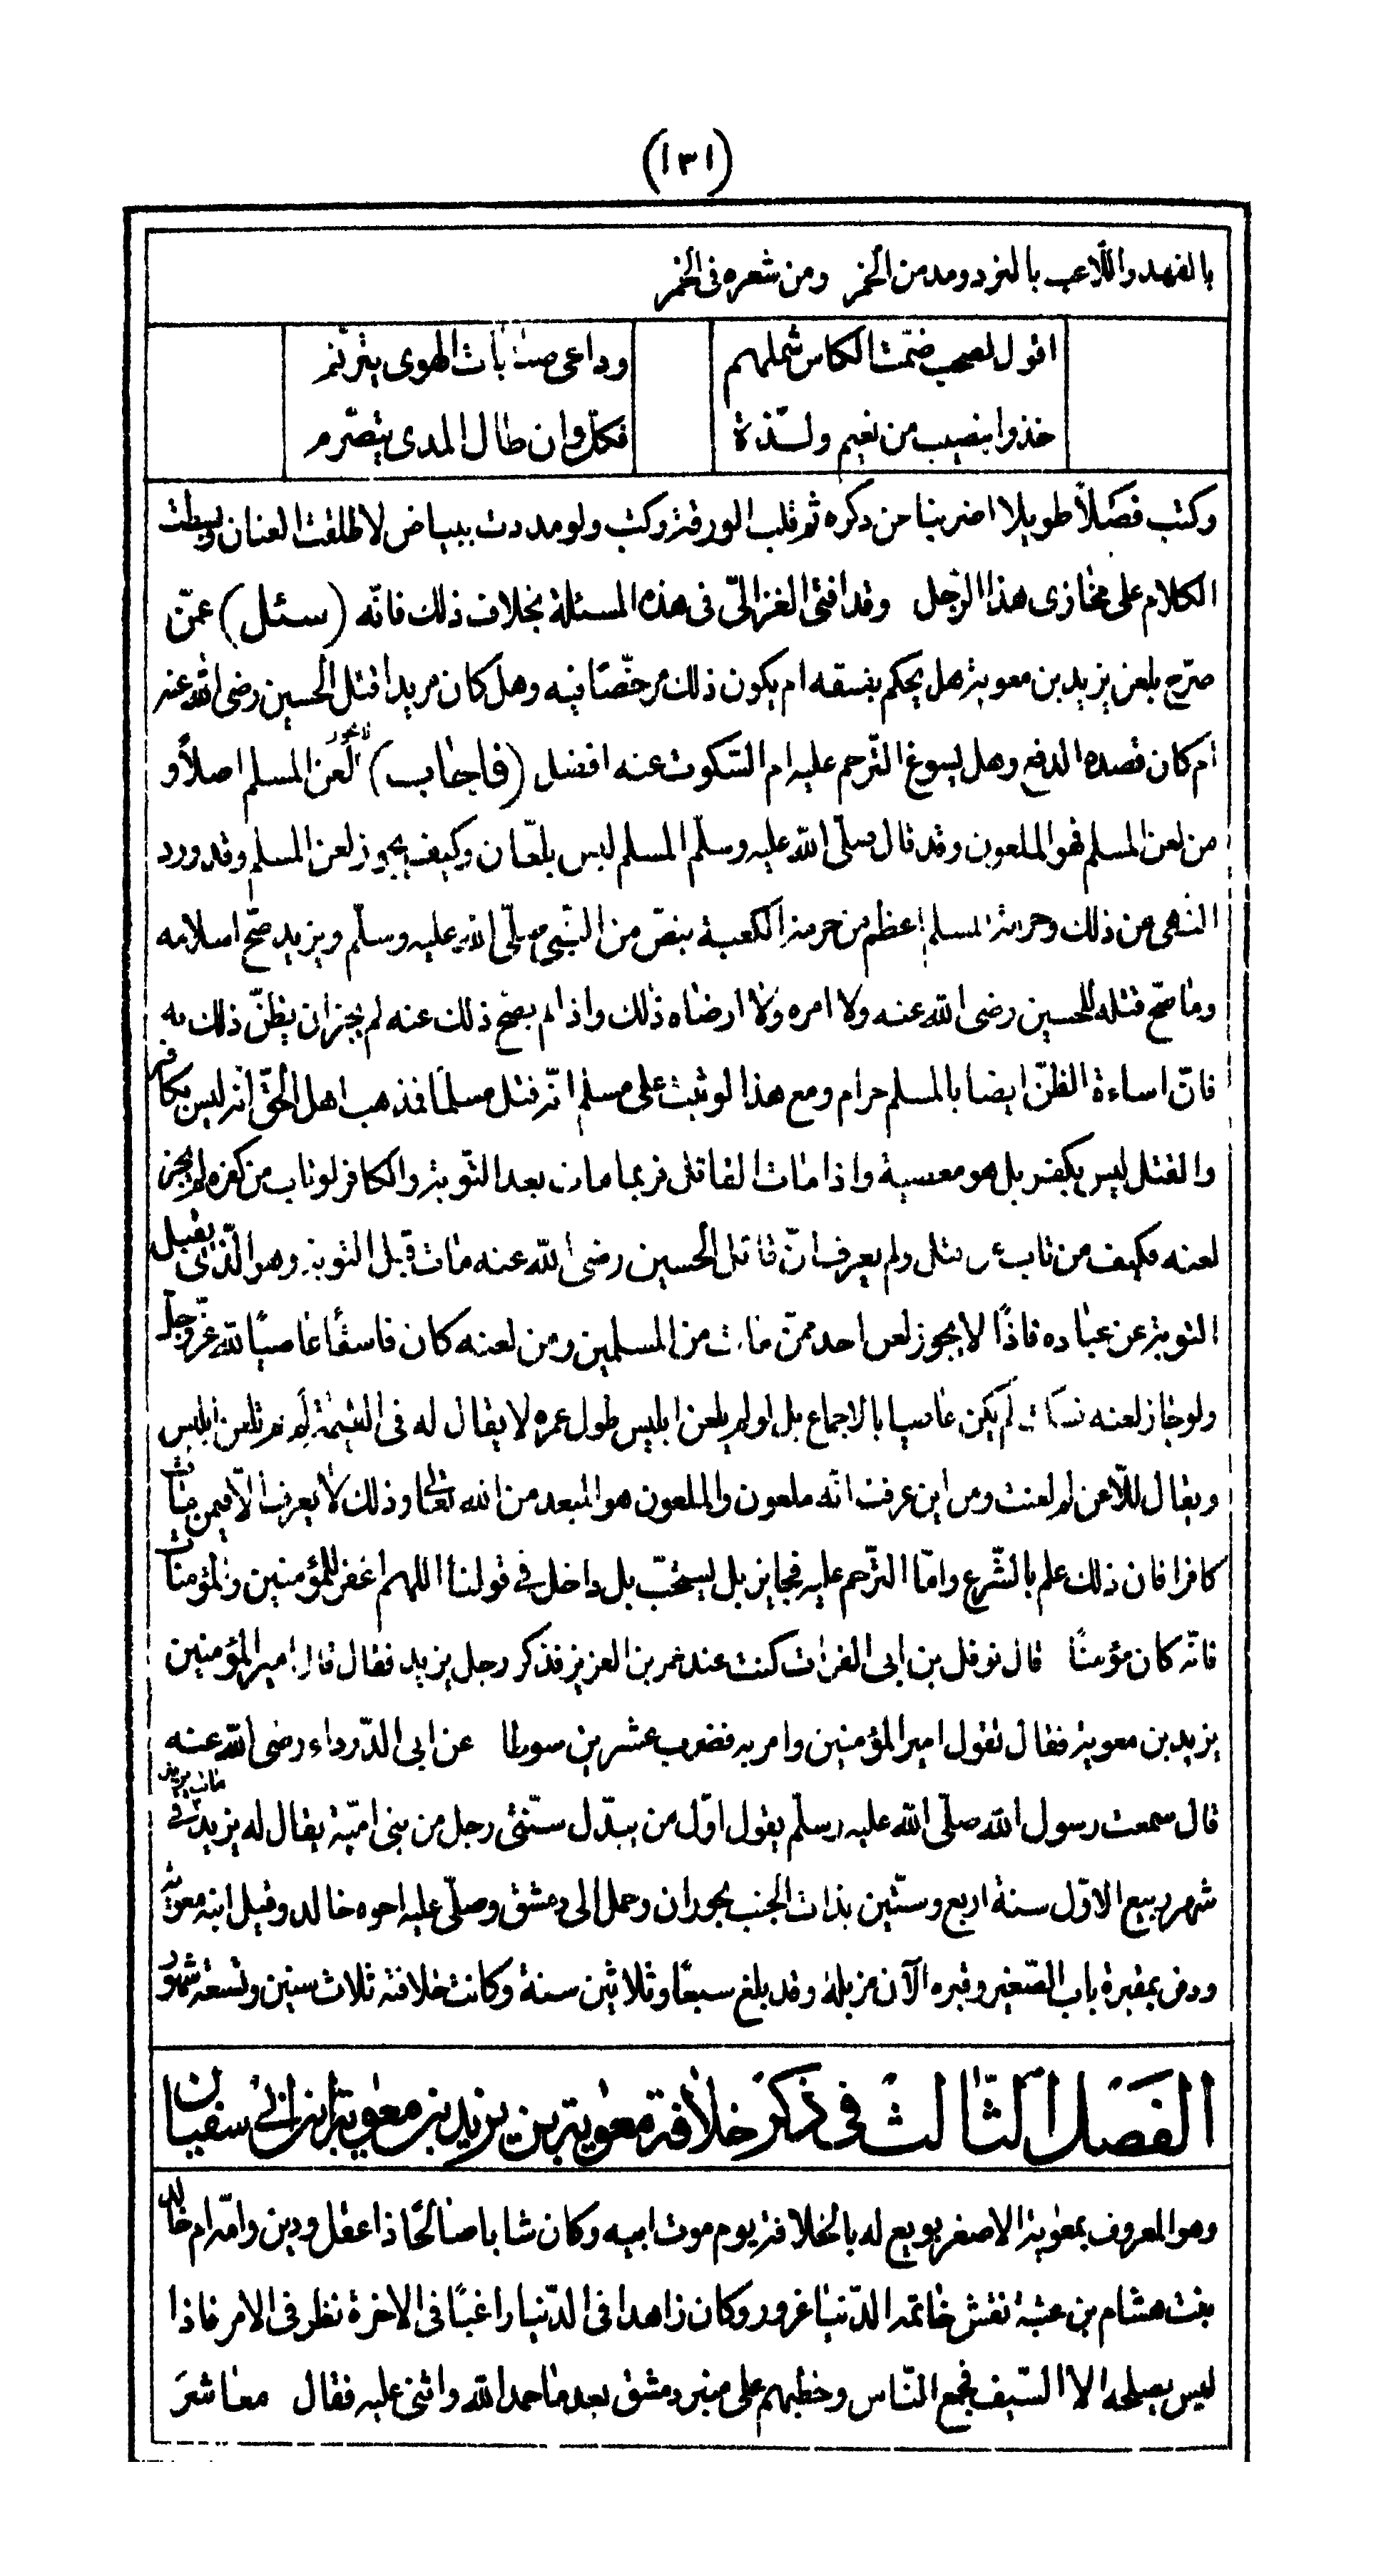 (١٣١)
بالفهد واللّاعب بالنرد ومدمن الخمر ومن شعره فى الخمر
اقول لصحب ضمّت الكاس شملهم وداعى صبابات الهوى يترنّم
خذوا بنصيب من نعيم ولذّة فكلّ وان طال المدى يتصرّم
وكتب فصلاً طويلا اضربنا عن ذكره ثم قلب الورقة وكتب ولو مددت ببياض لاطلقت العنان وبسطت
الكلام على مخازى هذا الرّجل وقد افتى الغزالىّ فى هذه المسئلة بخلاف ذلك فانّه (سئل) عمّن
صرّح بلعن يزيد بن معوية هل يحكم بفسقه ام يكون ذلك مرخّصا فيه وهل كان مريدا قتل الحسين رضى الله عنه
ام كان قصده الدفع وهل يسوغ التّرحم عليه ام السّكوت عنه افضل (فاجاب) لا يجوز لعن المسلم اصلاً و
من لعن المسلم فهو الملعون وقد قال صلّى الله عليه وسلّم المسلم ليس بلعّان وكيف يجوز لعن المسلم وقد ورد
النهى عن ذلك وحرمة المسلم اعظم من حرمة الكعبة بنصّ من النّبى صلّى الله عليه وسلّم ويزيد صحّ اسلامه
وما صحّ قتله للحسين رضى الله عنه ولا امره ولا ارضاه ذلك واذا لم يصحّ ذلك عنه لم يجز ان يظنّ ذلك به
فانّ اساءة الظنّ ايضا بالمسلم حرام ومع هذا لو ثبت على مسلم انّه قتل مسلما فمذهب اهل الحقّ انّه ليس بكافر
والقتل ليس بكفر بل هو معصية واذا مات القاتل فربما مات بعد التّوبة والكافر لو تاب من كفره لم يجز
لعنه فكيف من تاب عن قتل ولم يعرف انّ قاتل الحسين رضى الله عنه مات قبل التوبة وهو الّذى يقبل
التوبة عن عباده فاذًا لا يجوز لعن احد ممّن مات من المسلمين ومن لعنه كان فاسقًا عاصيًا لله عزّ وجلّ
ولو جاز لعنه فسكت لم يكن عاصيا بالاجماع بل لو لم يلعن ابليس طول عمره لا يقال له فى القيمة لم لم تلعن ابليس
ويقال للّاعن لم لعنت ومن اين عرفت انّه ملعون والملعون هو المبعد من الله تعالى وذلك لا يعرف الّا فيمن مات
كافرا فان ذلك علم بالشّرع وامّا التّرحم عليه فجايز بل يستحبّ بل داخل فى قولنا اللهم اغفر للمؤمنين والمؤمنات
فانّه كان مؤمنًا قال نوفل بن ابى الفرات كنت عند عمر بن العزيز فذكر رجل يزيد فقال قال امير المؤمنين
يزيد بن معوية فقال تقول امير المؤمنين وامر به فضرب عشرين سوطا عن ابى الدّرداء رضى الله عنه
قال سمعت رسول الله صلّى الله عليه وسلّم يقول اوّل من يبدّل سنّتى رجل من بنى اميّة يقال له يزيد مات يزيد فى
شهر ربيع الاوّل سنة اربع وستّين بذات الجنب بحوران وحمل الى دمشق وصلّى عليه اخوه خالد وقيل ابنه معوية
ودفن بمقبرة باب الصّغير وقبره الآن مزبلة وقد بلغ سبعًا وثلاثين سنة وكانت خلافته ثلاث سنين وتسعة شهور
الفصل الثّالث فى ذكر خلافة معوية بن يزيد بن معوية ابن ابى سفيان
وهو المعروف بمعوية الاصغر بويع له بالخلافة يوم موت ابيه وكان شابا صالحًا ذا عقل ودين وامّه ام خالد
بنت هشام بن عتبة نقش خاتمه الدّنيا غرور وكان زاهدا فى الدّنيا راغبًا فى الاخرة نظر فى الامر فاذا
ليس يصلحه الا السّيف فجمع النّاس وخطبهم على منبر دمشق بعد ما حمد الله واثنى عليه فقال معاشر